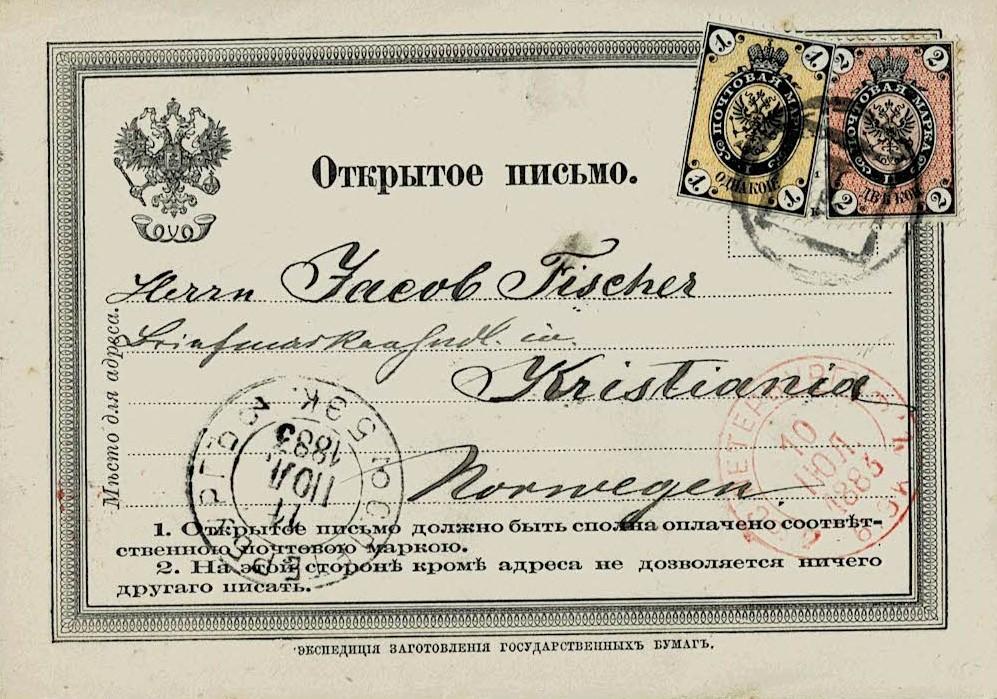 1 1
ПОЧТОВАЯ МАРКА
ОДНА КОП.
1 1
2 2
ПОЧТОВАЯ МАРКА
ДВѢ КОП.
2 2
Открытое письмо.
Herrn Jacob Fischer
Briefmarkenhndl. in
Kristiania
Norwegen
Мѣсто для адреса.
10
ІЮЛ.
1883
11
ІЮЛ.
1883
1. Открытое письмо должно быть сполна оплачено соотвѣт-
ственною почтовою маркою.
2. На этой сторонѣ кромѣ адреса не дозволяется ничего
другаго писать.
ЭКСПЕДИЦІЯ ЗАГОТОВЛЕНІЯ ГОСУДАРСТВЕННЫХЪ БУМАГЪ.